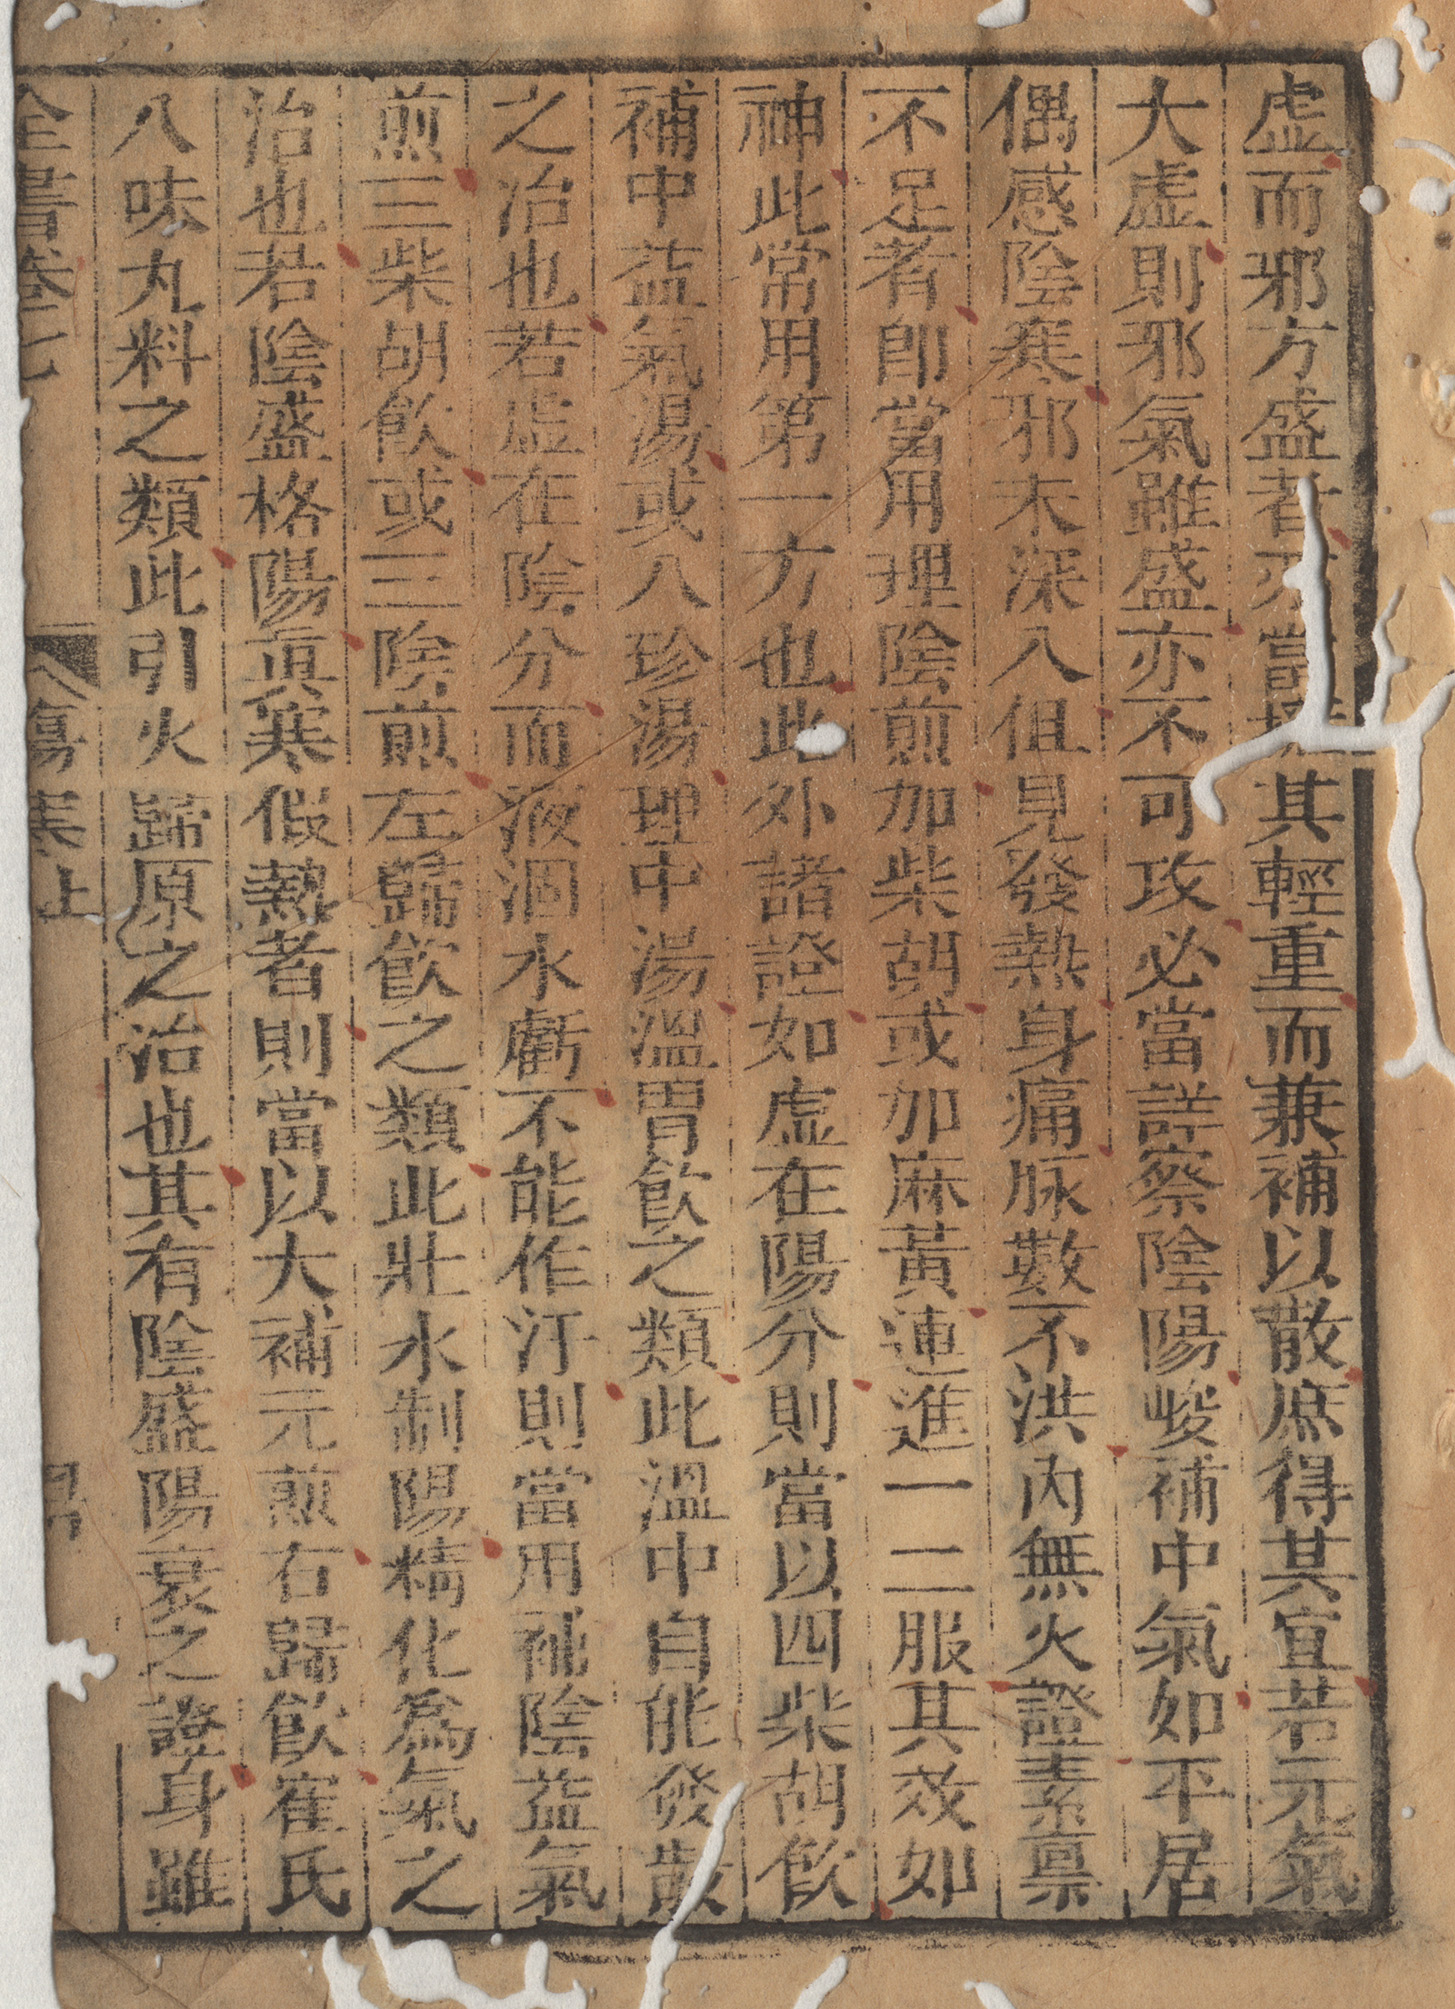 虛而邪方盛者亦當揣其輕重而兼補以散庶得其宜若元氣
大虛則邪氣雖盛亦不可攻必當詳察陰陽峻補中氣如平居
偶感陰寒邪未深入但見發熱身痛脉數不洪內無火證素禀
不足者卽當用理陰煎加柴胡或加麻黃連進一二服其效如
神此常用第一方也此外諸證如虛在陽分則當以四柴胡飲
補中益氣湯或八珍湯理中湯溫胃飲之類此溫中自能發散
之治也若虛在陰分而液涸水虧不能作汗則當用補陰益氣
煎三柴胡飲或三陰煎左歸飲之類此壯水制陽精化爲氣之
治也若陰盛格陽眞寒假熱者則當以大補元煎右歸飲崔氏
八味丸料之類此引火歸原之治也其有陰盛陽衰之證身雖
全書卷七 傷寒上